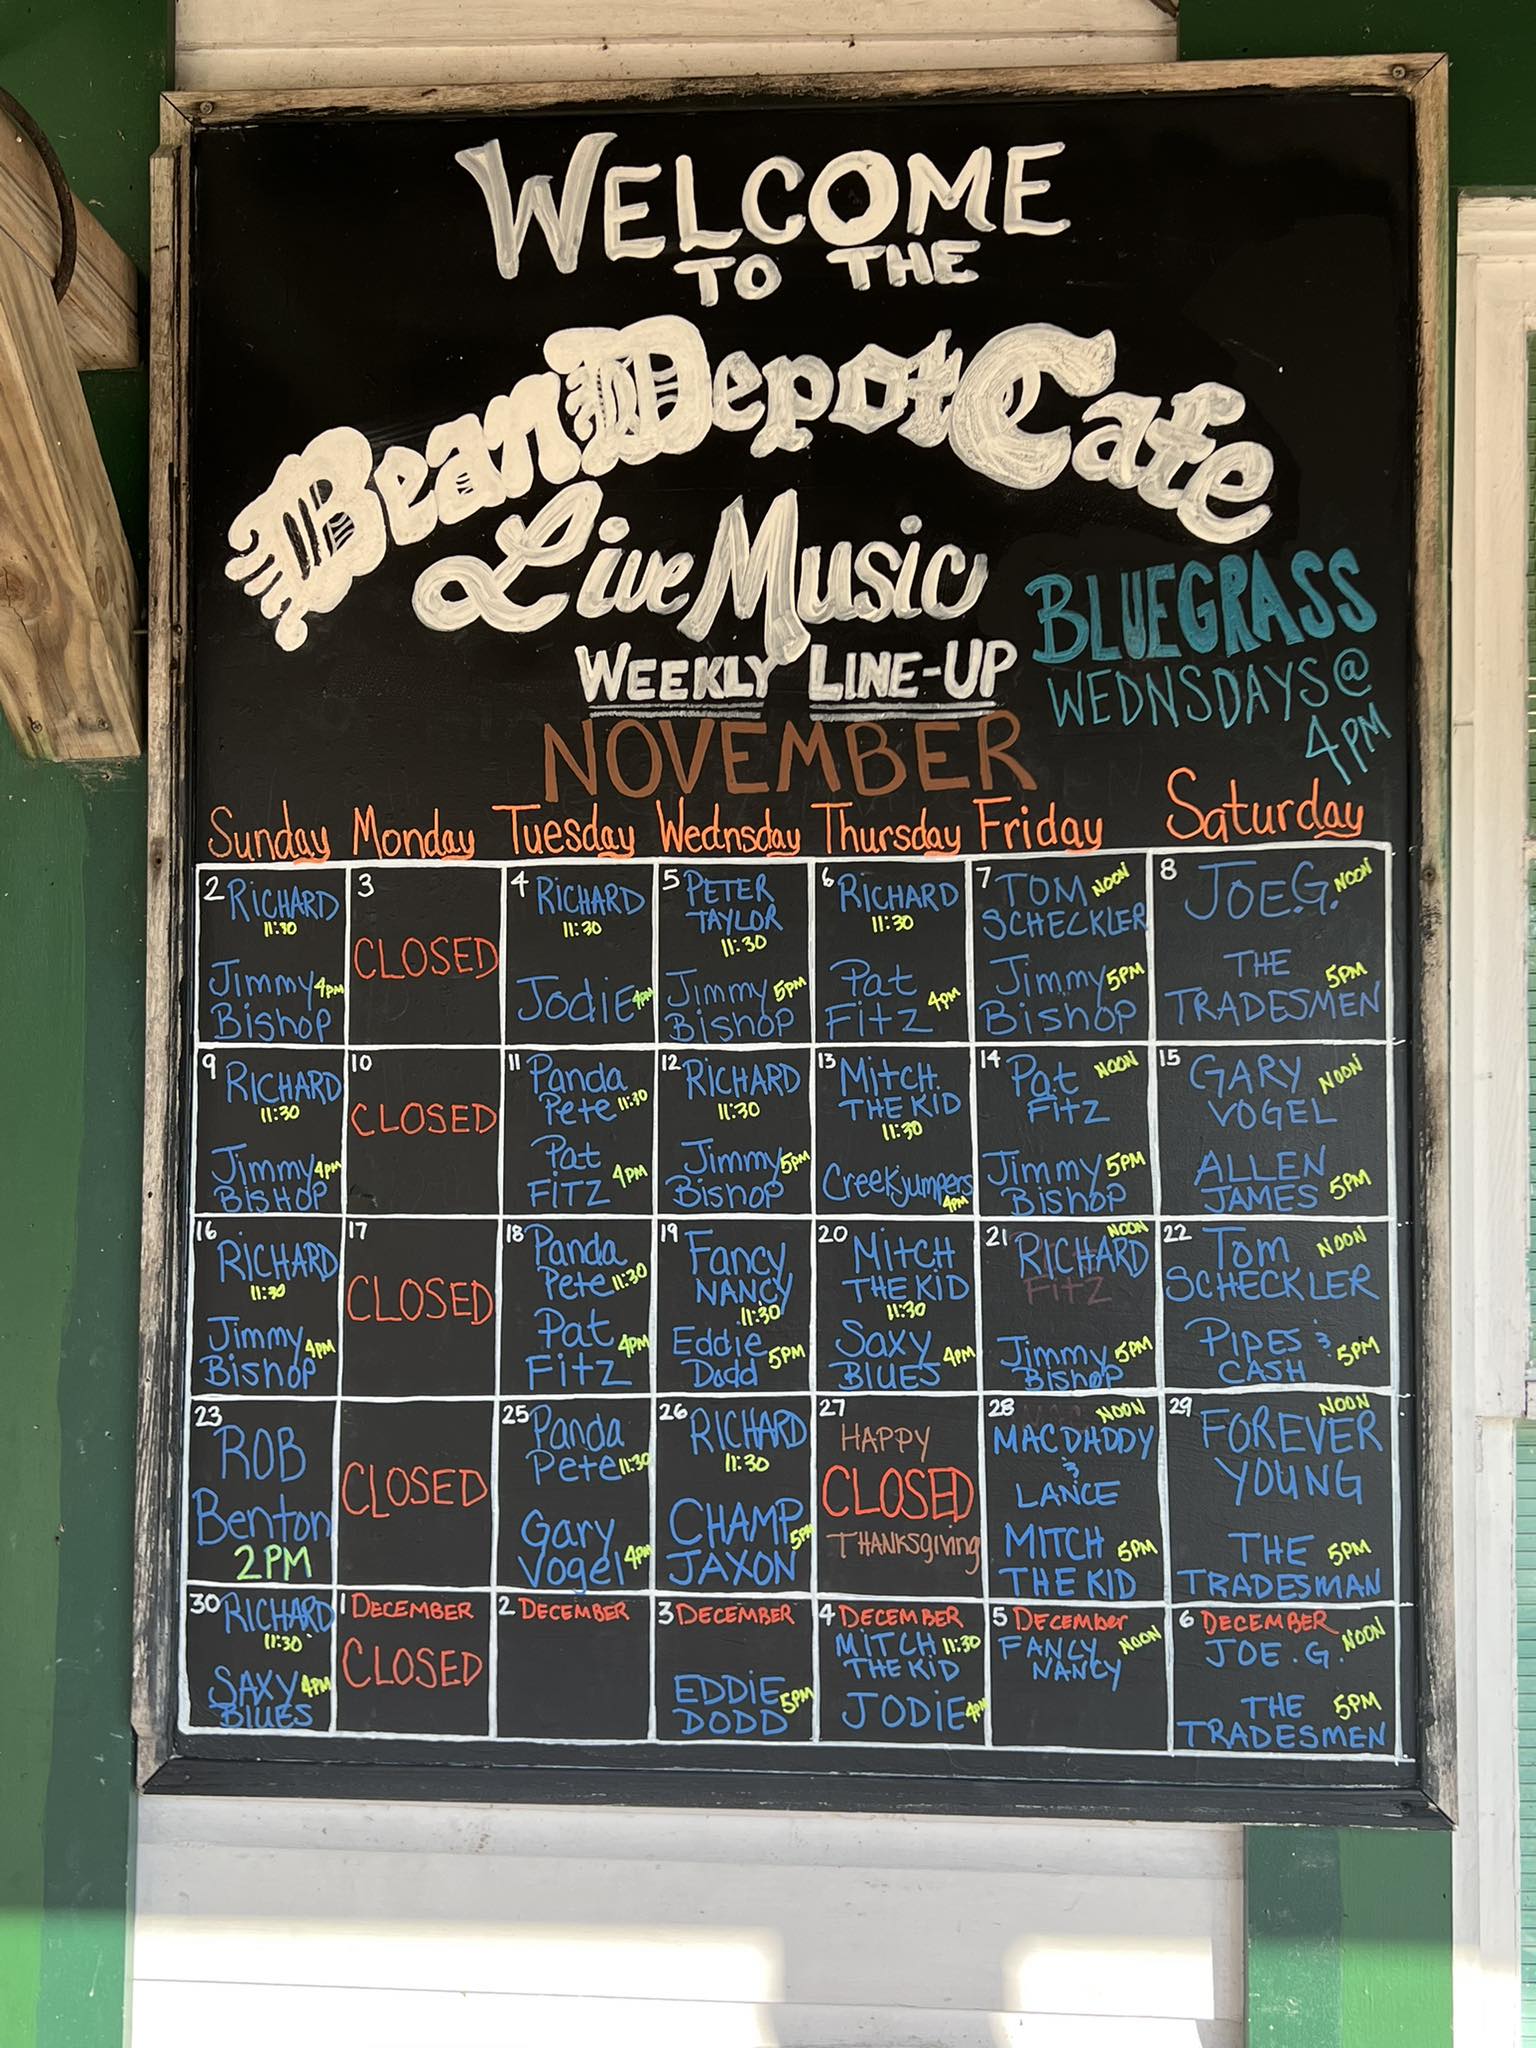 WELCOME
TO THE
Bean Depot Cafe
Live Music
WEEKLY LINE-UP
BLUEGRASS
WEDNSDAYS @
4PM
NOVEMBER
Sunday Monday Tuesday Wednsday Thursday Friday Saturday
2 RICHARD
11:30
Jimmy 4PM
Bishop
3
CLOSED
4 RICHARD
11:30
JodiE 4PM
5 PETER
TAYLOR
11:30
Jimmy 5PM
Bishop
6 RICHARD
11:30
Pat
Fitz 4PM
7 TOM NOON
SCHECKLER
Jimmy 5PM
Bishop
8 JOE.G. NOON
THE 5PM
TRADESMEN
9 RICHARD
11:30
Jimmy 4PM
BISHOP
10
CLOSED
11 Panda
Pete 11:30
Pat
FITZ 4PM
12 RICHARD
11:30
Jimmy 5PM
Bishop
13 MITCH
THE KID
11:30
Creekjumpers
4PM
14 Pat NOON
FITZ
Jimmy 5PM
Bishop
15 GARY NOON
VOGEL
ALLEN
JAMES 5PM
16 RICHARD
11:30
Jimmy 4PM
Bishop
17
CLOSED
18 Panda
Pete 11:30
Pat 4PM
Fitz
19 Fancy
NANCY
11:30
Eddie
Dodd 5PM
20 MITCH
THE KID
11:30
Saxy
BlUES 4PM
21 NOON
RICHARD
FITZ
Jimmy 5PM
Bishop
22 Tom NOON
SCHECKLER
PIPES &
CASH 5PM
23
ROB
Benton
2PM
CLOSED
25 Panda
Pete 11:30
Gary
Vogel 4PM
26 RICHARD
11:30
CHAMP
JAXON 5PM
27
HAPPY
CLOSED
THANKSgiving
28 NOON
MACDADDY
&
LANCE
MITCH 5PM
THE KID
29 NOON
FOREVER
YOUNG
THE 5PM
TRADESMAN
30 RICHARD
11:30
SAXY 4PM
BLUES
1 DECEMBER
CLOSED
2 DECEMBER
3 DECEMBER
EDDIE 5PM
DODD
4 DECEMBER
MITCH 11:30
THE KID
JODIE 4PM
5 DECEMber
FANCY NOON
NANCY
6 DECEMBER
JOE.G. NOON
THE 5PM
TRADESMEN